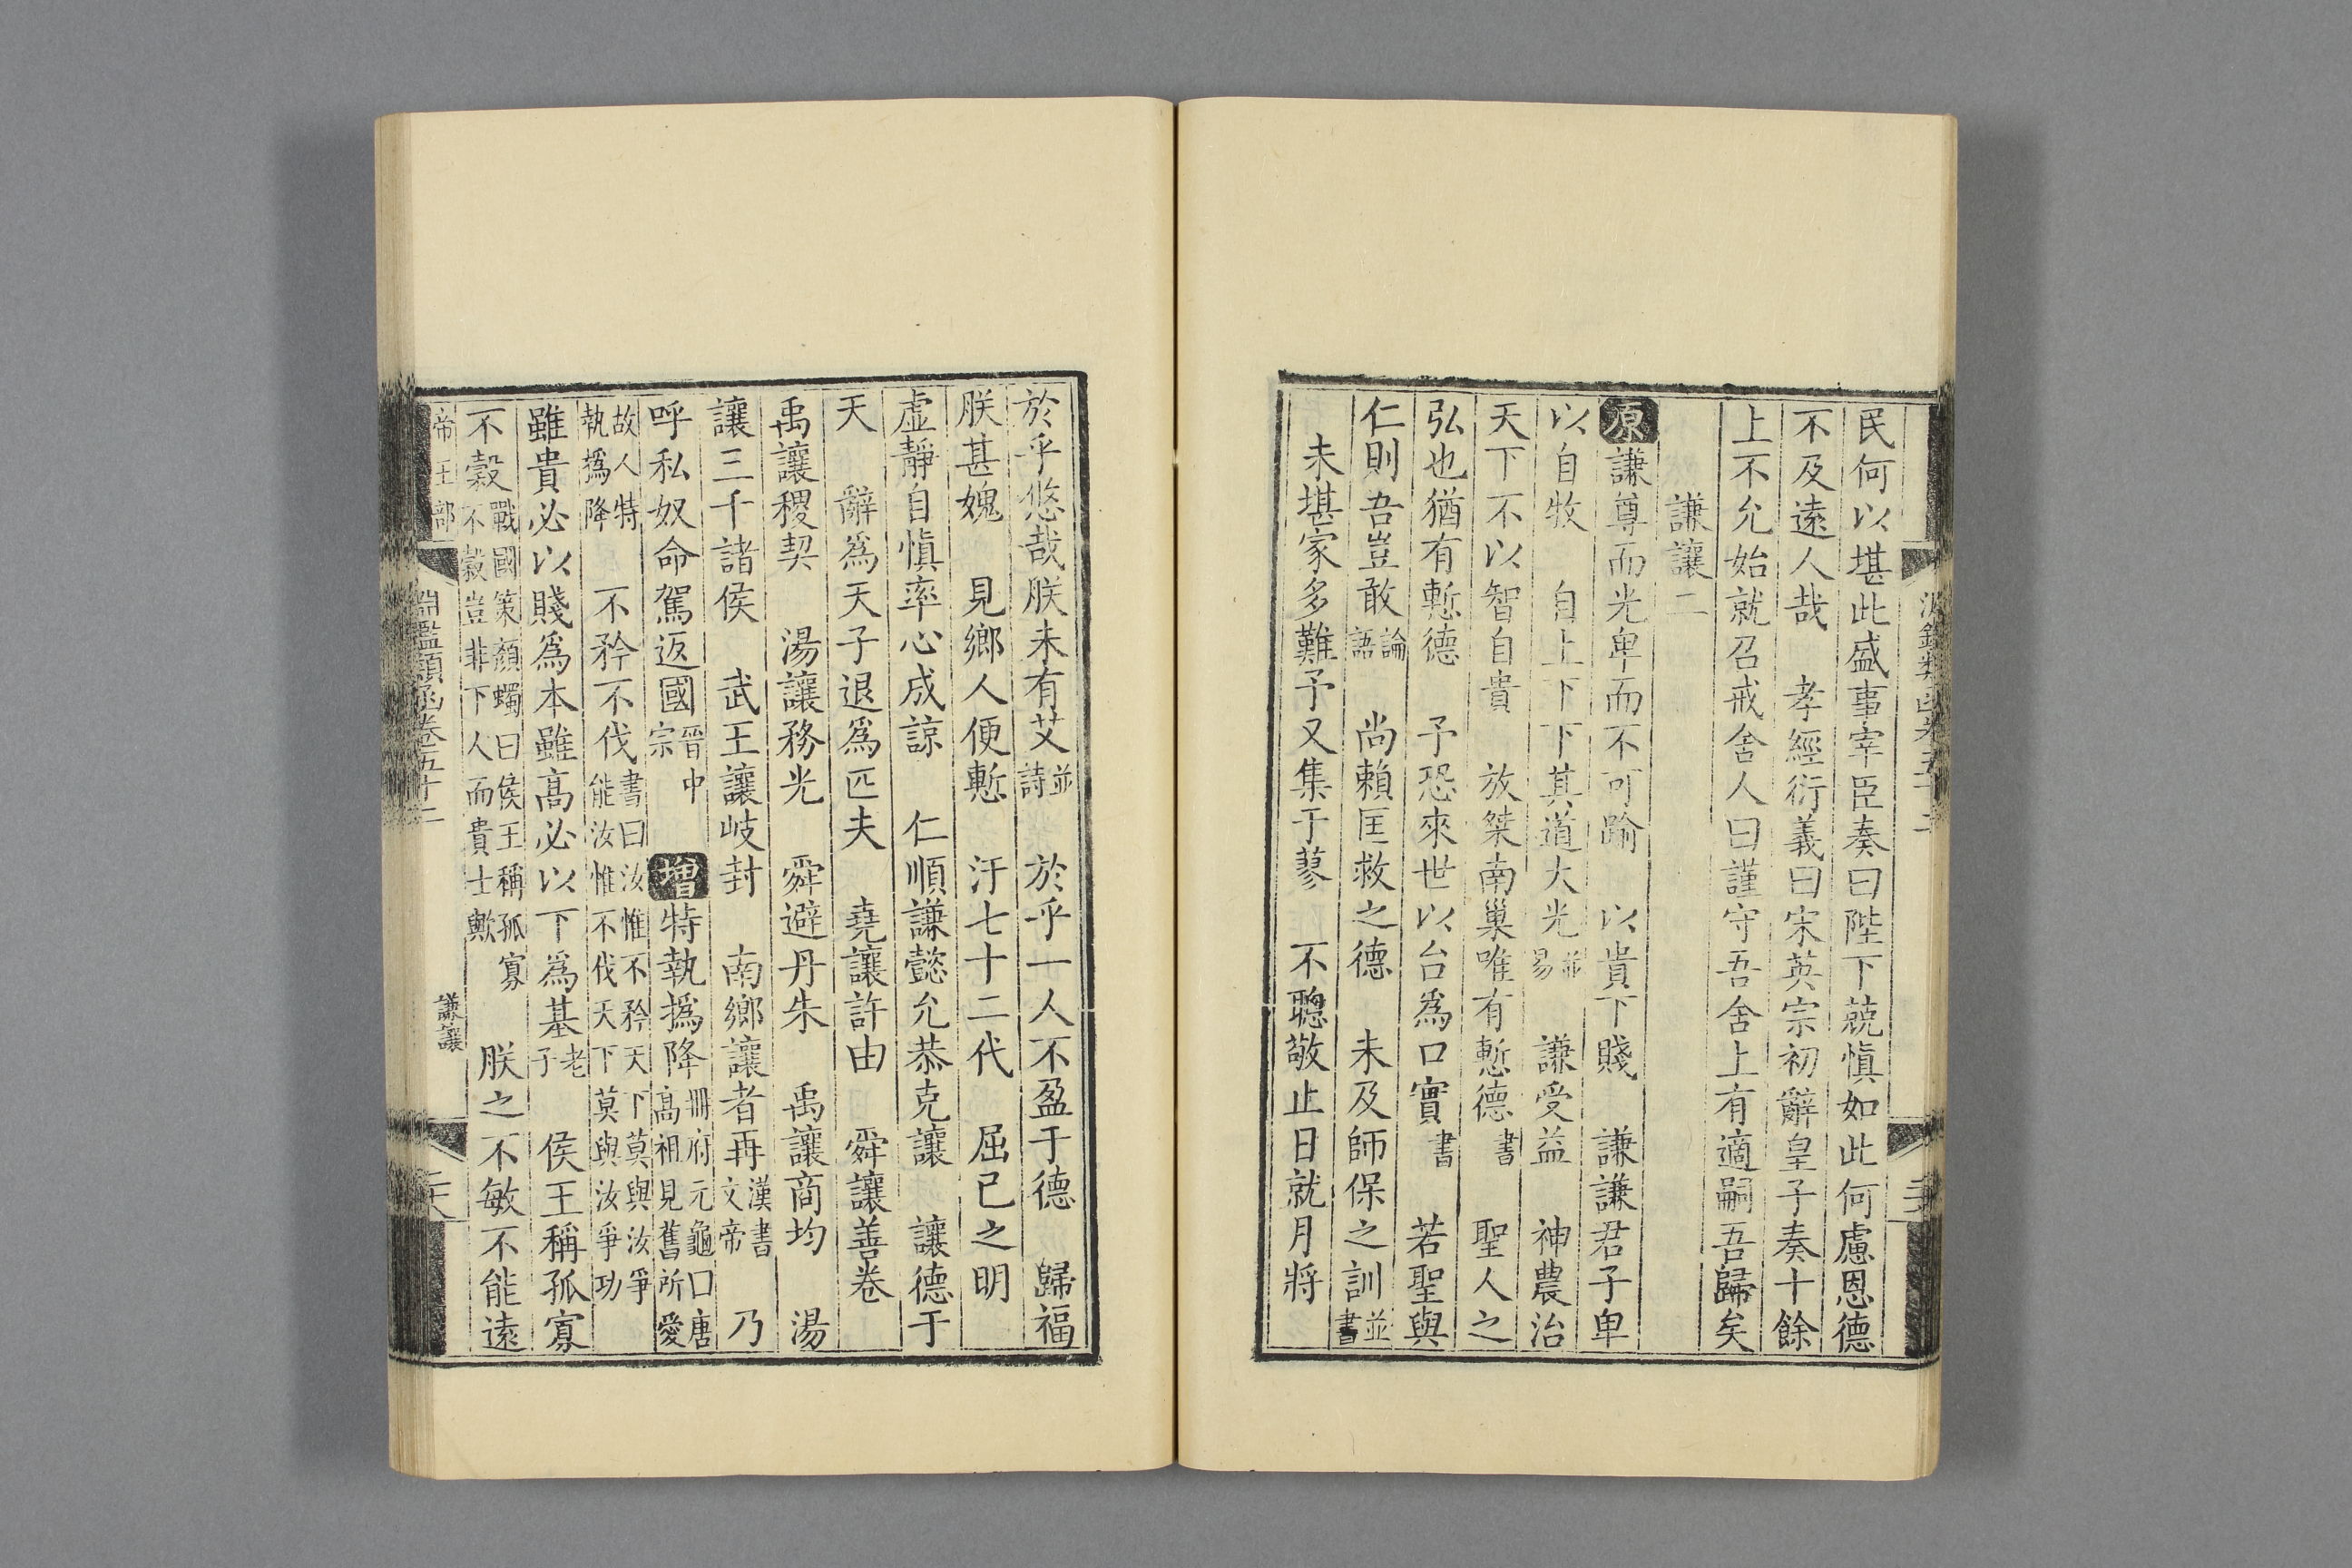 民何以堪此盛事宰臣奏曰陛下兢慎如此何慮恩德
不及遠人哉　孝經衍義曰宋英宗初辭皇子奏十餘
上不允始就召戒舍人曰謹守吾舍上有適嗣吾歸矣
謙讓二
原謙尊而光卑而不可踰　以貴下賤　謙謙君子卑
以自牧　自上下下其道大光並易　謙受益　神農治
天下不以智自貴　放桀南巢唯有慙德書　聖人之
弘也猶有慙德　予恐來世以台為口實書　若聖與
仁則吾豈敢論語　尚賴匡救之德　未及師保之訓並書
未堪家多難予又集于蓼　不聰敬止日就月將
於乎悠哉朕未有艾並詩　於乎一人不盈于德　歸福
朕甚媿　見鄉人便慙　汙七十二代　屈已之明
虛靜自慎率心成諒　仁順謙懿允恭克讓　讓德于
天　辭為天子退為匹夫　堯讓許由　舜讓善卷
禹讓稷契　湯讓務光　舜避丹朱　禹讓商均　湯
讓三千諸侯　武王讓岐封　南鄉讓者再漢書文帝　乃
呼私奴命駕返國晉中宗　增特執撝降冊府元龜口唐高祖見舊所愛
故人特執撝降　不矜不伐書曰汝惟不矜天下莫與汝爭能汝惟不伐天下莫與汝爭功
雖貴必以賤為本雖高必以下為基老子　侯王稱孤寡
不穀戰國策顏蠋曰侯王稱孤寡不穀豈非下人而貴士歟　朕之不敏不能遠
帝王部　淵鑑類函卷五十二　謙讓